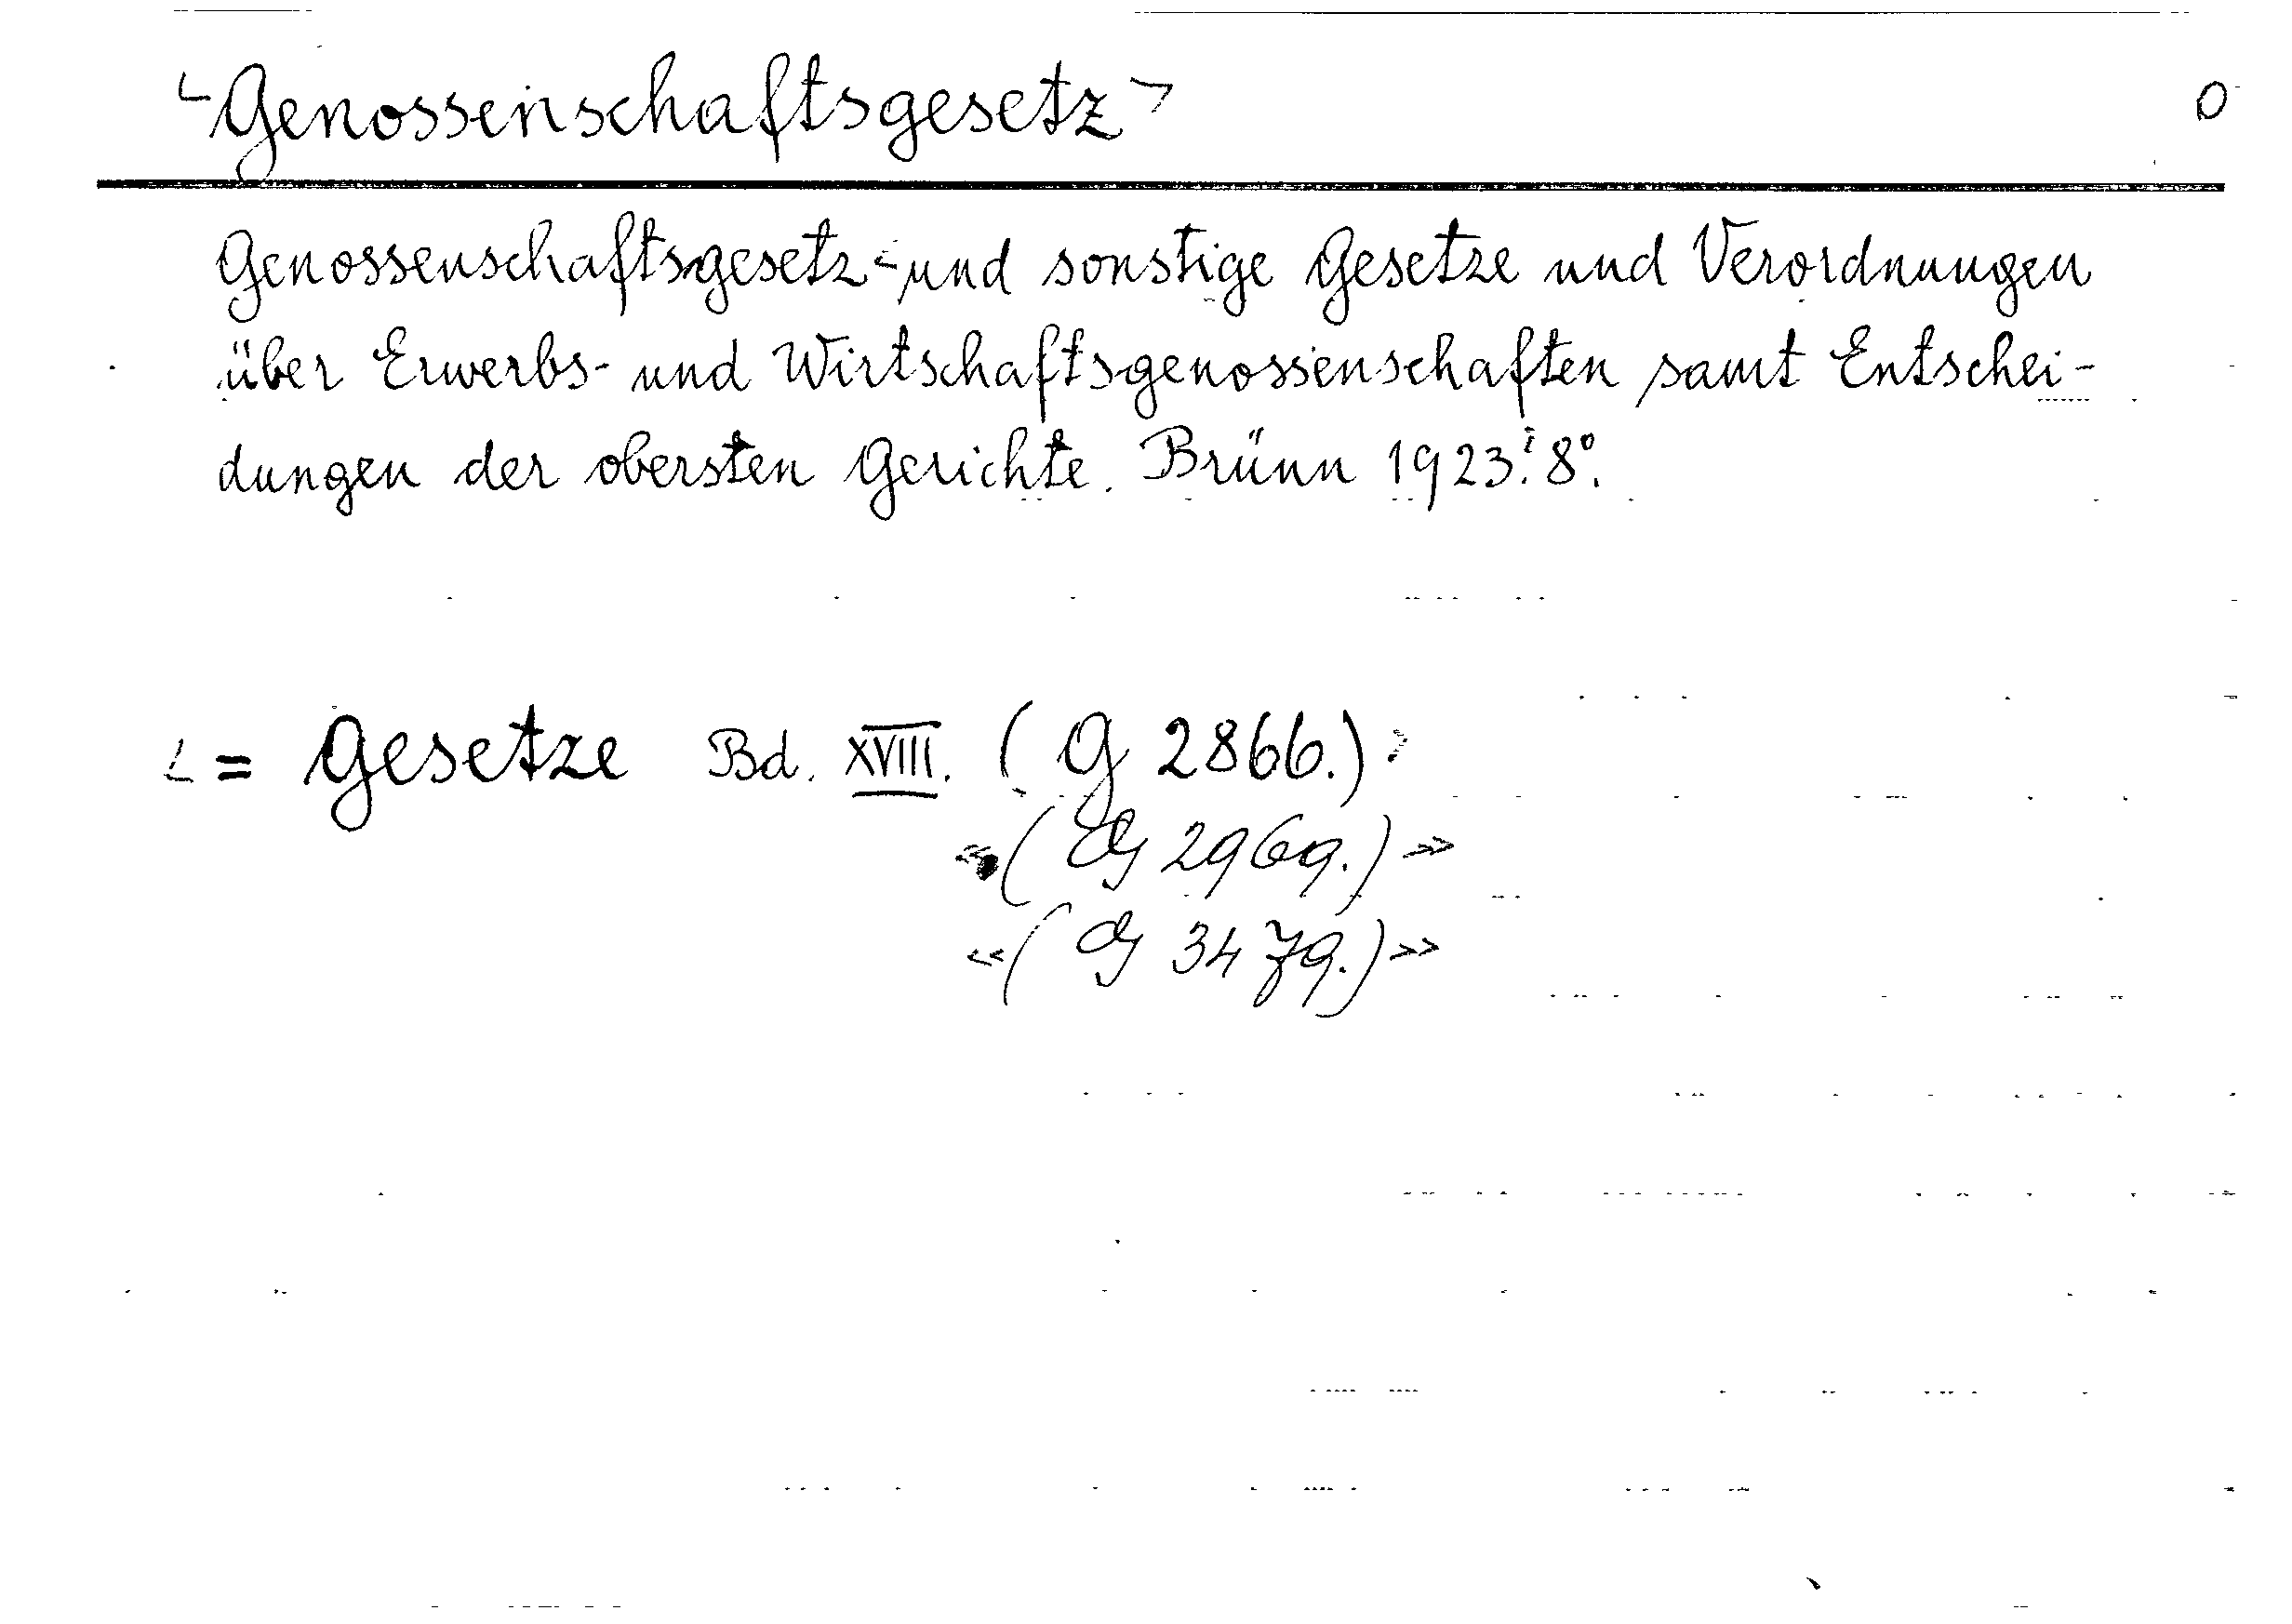 <Genossenschaftsgesetz> O
Genossenschaftsgesetz < und sonstige Gesetze und Verordnungen
über Erwerbs- und Wirtschaftsgenossenschaften samt Entschei-
dungen der obersten Gerichte. Brünn 1923: 8°.
< = Gesetze Bd. XVIII. (G 2866.) >
«(G 2969.)»
«(G 3479.)»